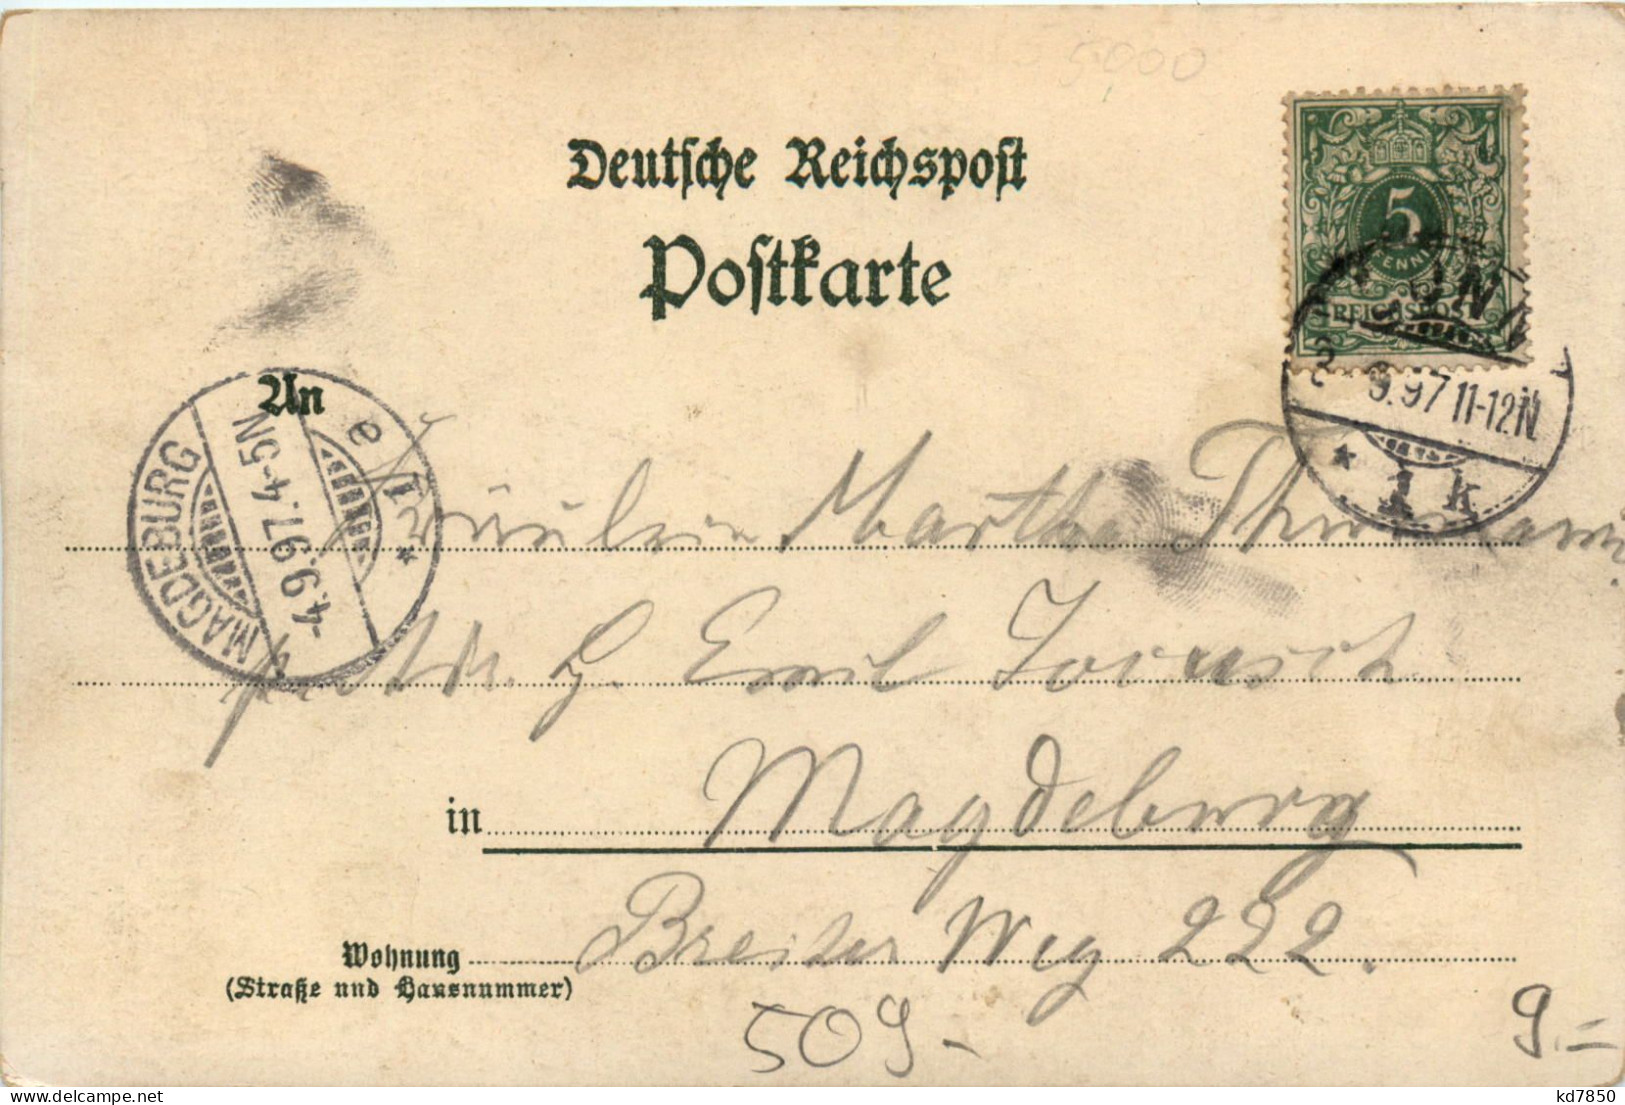 5000
Deutsche Reichspost
Postkarte
5
PFENNIG
REICHSPOST
9.97 11-12N.
* 1 k
An
MAGDEBURG
-4.9.97.4-5N
* 1 e
Fräulein Martha
Emil
in Magdeburg
Wohnung Breiter Weg 222.
(Straße und Hausnummer)
509.-
9.=
kd7850